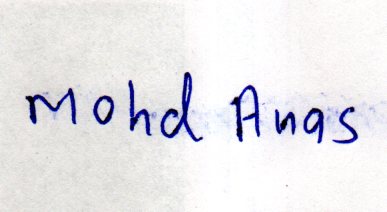 Mohd Anas